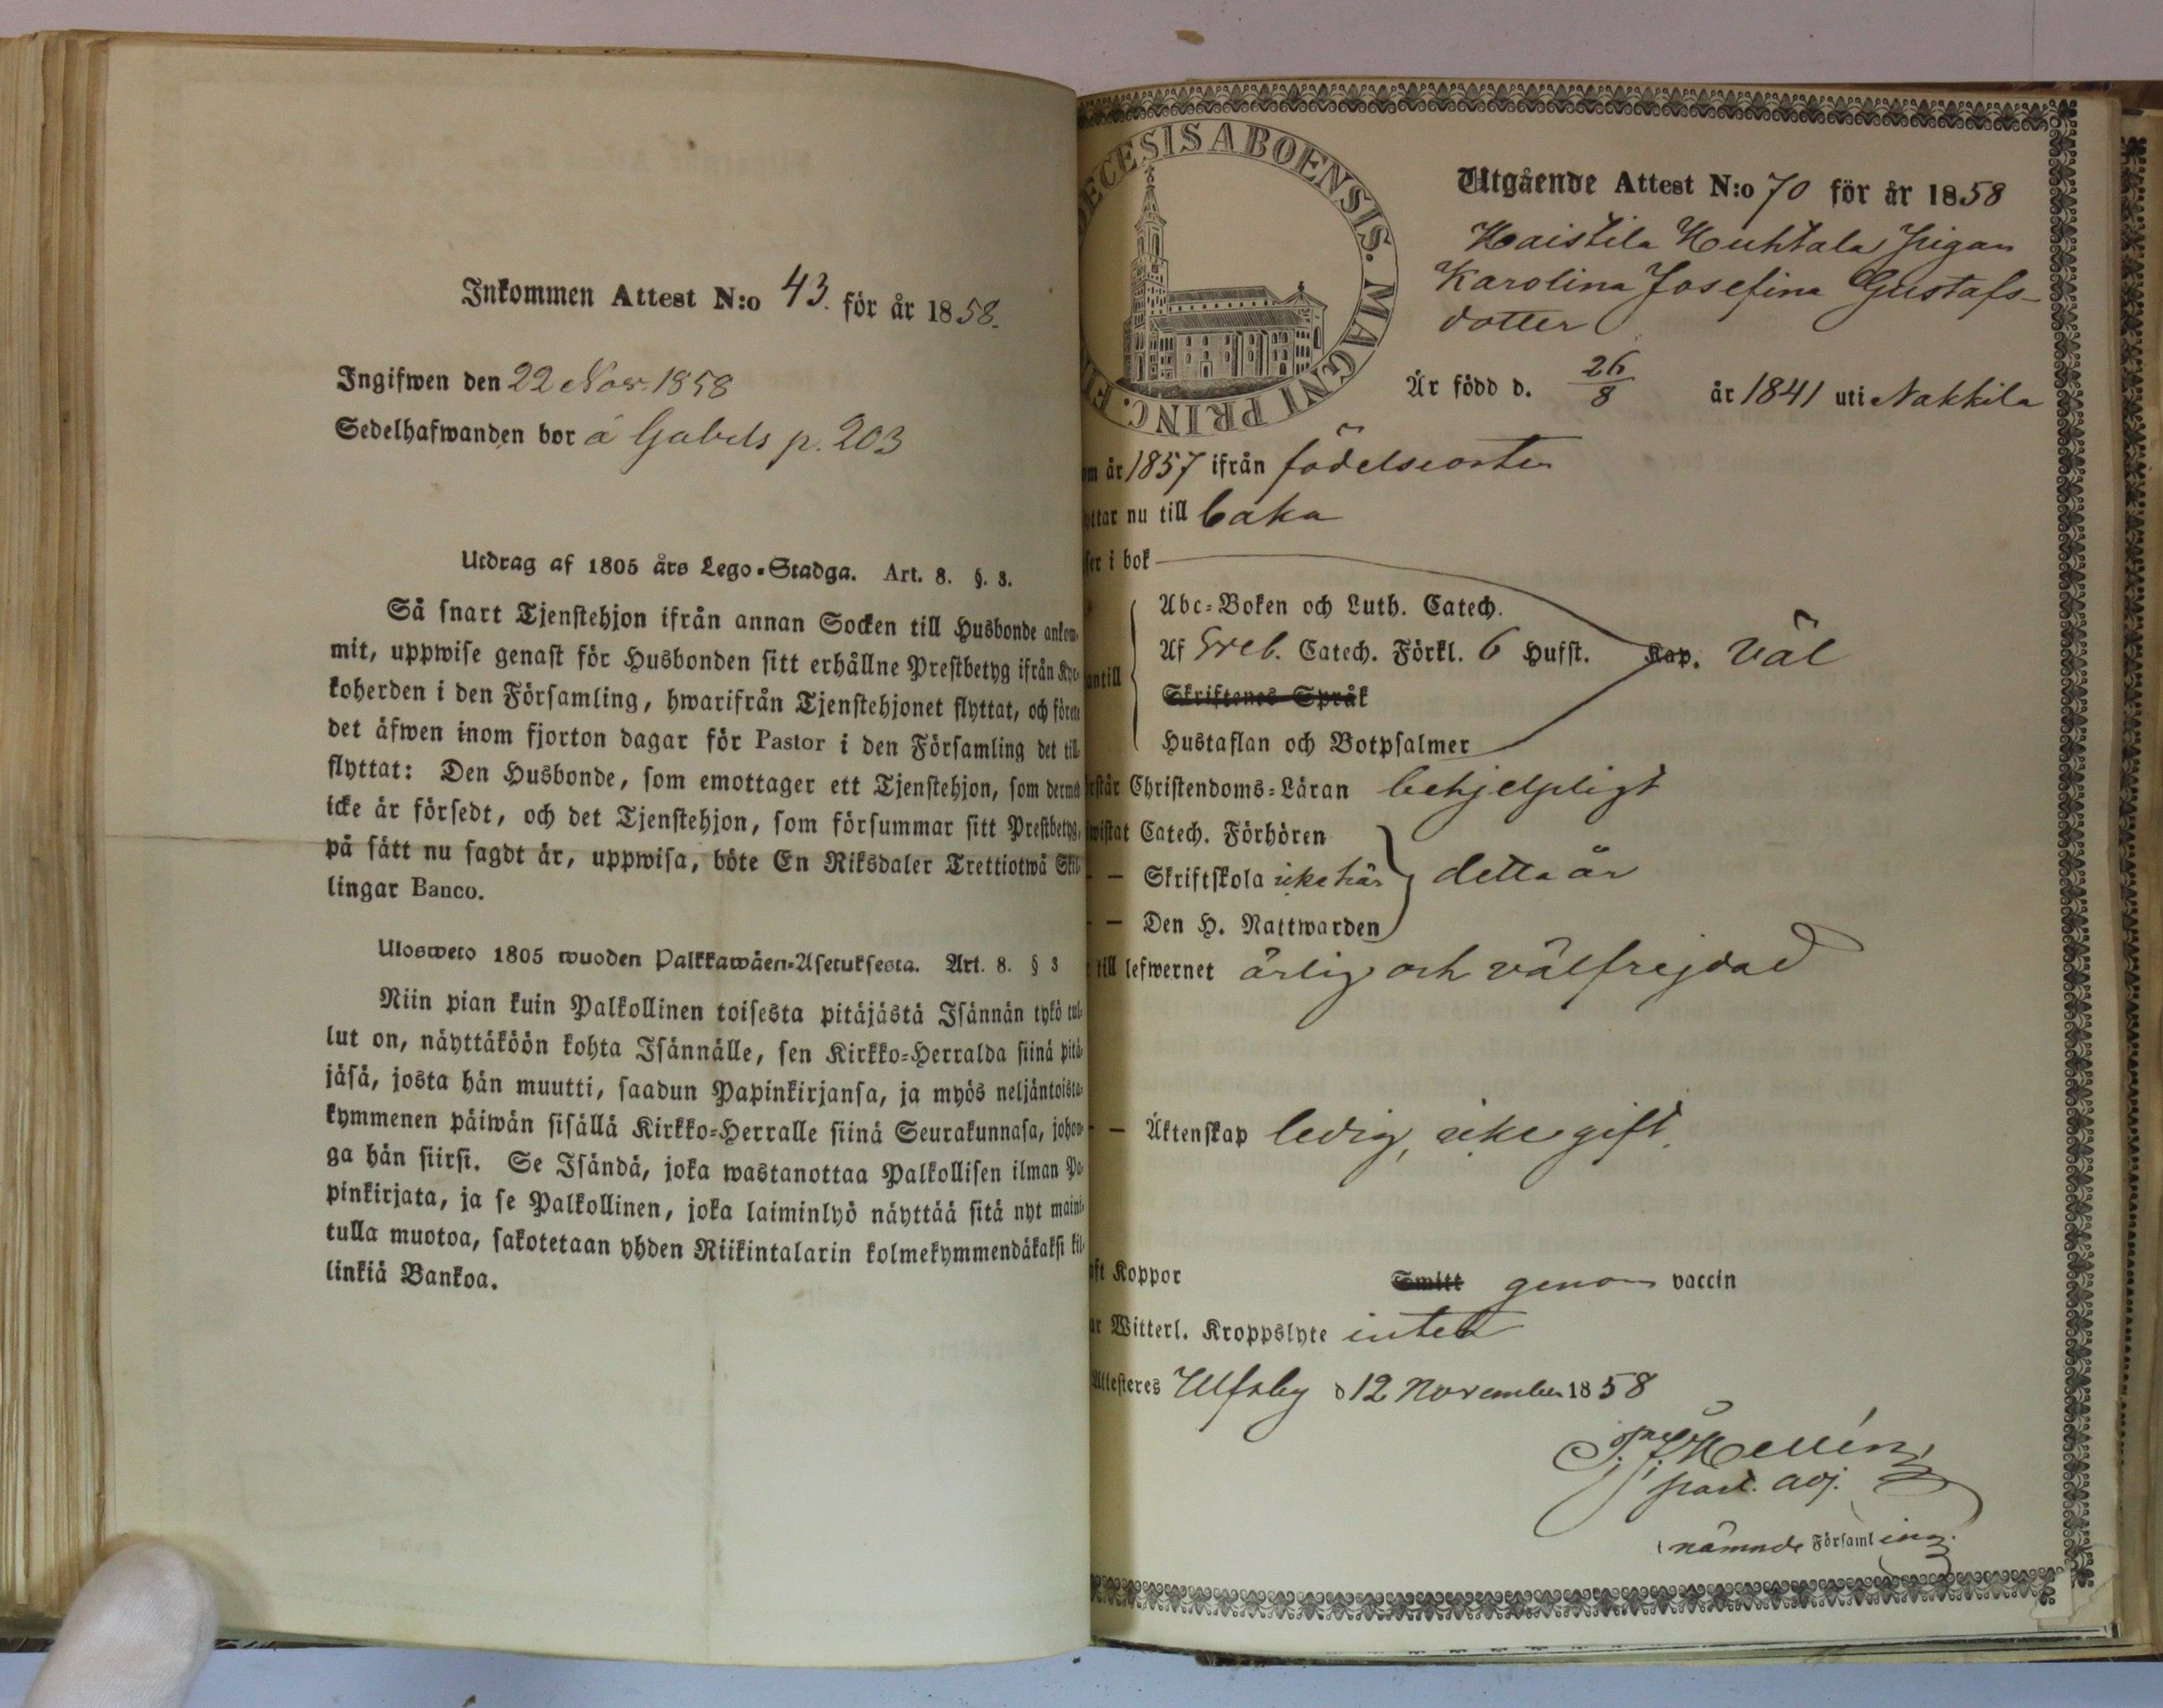 Inkommen Attest N:o 43. för år 1858.
Ingifwen den 22 Nov. 1858
Sedelhafwanden bor å Gabels p. 203
Utdrag af 1805 års Lego-Stadga. Art. 8. §. 3.
Så snart Tjenstehjon ifrån annan Socken till Husbonde ankom-
mit, uppwise genast för Husbonden sitt erhållne Prestbetyg ifrån Kyr-
koherden i den Församling, hwarifrån Tjenstehjonet flyttat, och förete
det äfwen inom fjorton dagar för Pastor i den Församling det till-
flyttat: Den Husbonde, som emottager ett Tjenstehjon, som dermed
icke är försedt, och det Tjenstehjon, som försummar sitt Prestbetyg,
på sätt nu sagdt är, uppwisa, böte En Riksdaler Trettiotwå Skil-
lingar Banco.
Ulosweto 1805 wuoden Palkkawäen-Asetuksesta. Art. 8. § 3
Niin pian kuin Palkollinen toisesta pitäjästä Isännän tykö tul-
lut on, näyttäköön kohta Isännälle, sen Kirkko-Herralda siinä pitä-
jäsä, josta hän muutti, saadun Papinkirjansa, ja myös neljäntoista-
kymmenen päiwän sisällä Kirkko-Herralle siinä Seurakunnasa, johon-
ga hän siirsi. Se Isändä, joka wastanottaa Palkollisen ilman Pa-
pinkirjata, ja se Palkollinen, joka laiminlyö näyttää sitä nyt maini-
tulla muotoa, sakotetaan yhden Riikintalarin kolmekymmendäkaksi kil-
linkiä Bankoa.
ECESIS ABOENSIS. MAGNI PRINC. FI
Utgående Attest N:o 70 för år 1858
Haistila Huhtala Pigan
Karolina Josefina Gustafs-
dotter
Är född d. 26/8 år 1841 uti Nakkila
om år 1857 ifrån födelseorten
yttar nu till baka
ser i bok
Abc-Boken och Luth. Catech.
Af Sveb. Catech. Förkl. 6 Hufst. Kap. väl
antill
Skriftenes Språk
Hustaflan och Botpsalmer
rstår Christendoms-Läran behjelpligt
wistat Catech. Förhören
— Skriftskola icke här detta år
— Den H. Nattwarden
till lefwernet ärlig och välfrejdad
— Äktenskap ledig, icke gift.
aft Koppor Smitt genom vaccin
ar Witterl. Kroppslyte intet
Attesteres Ulfsby d 12 November 1858
Hellén
past. adj.
i nämnde Församling.